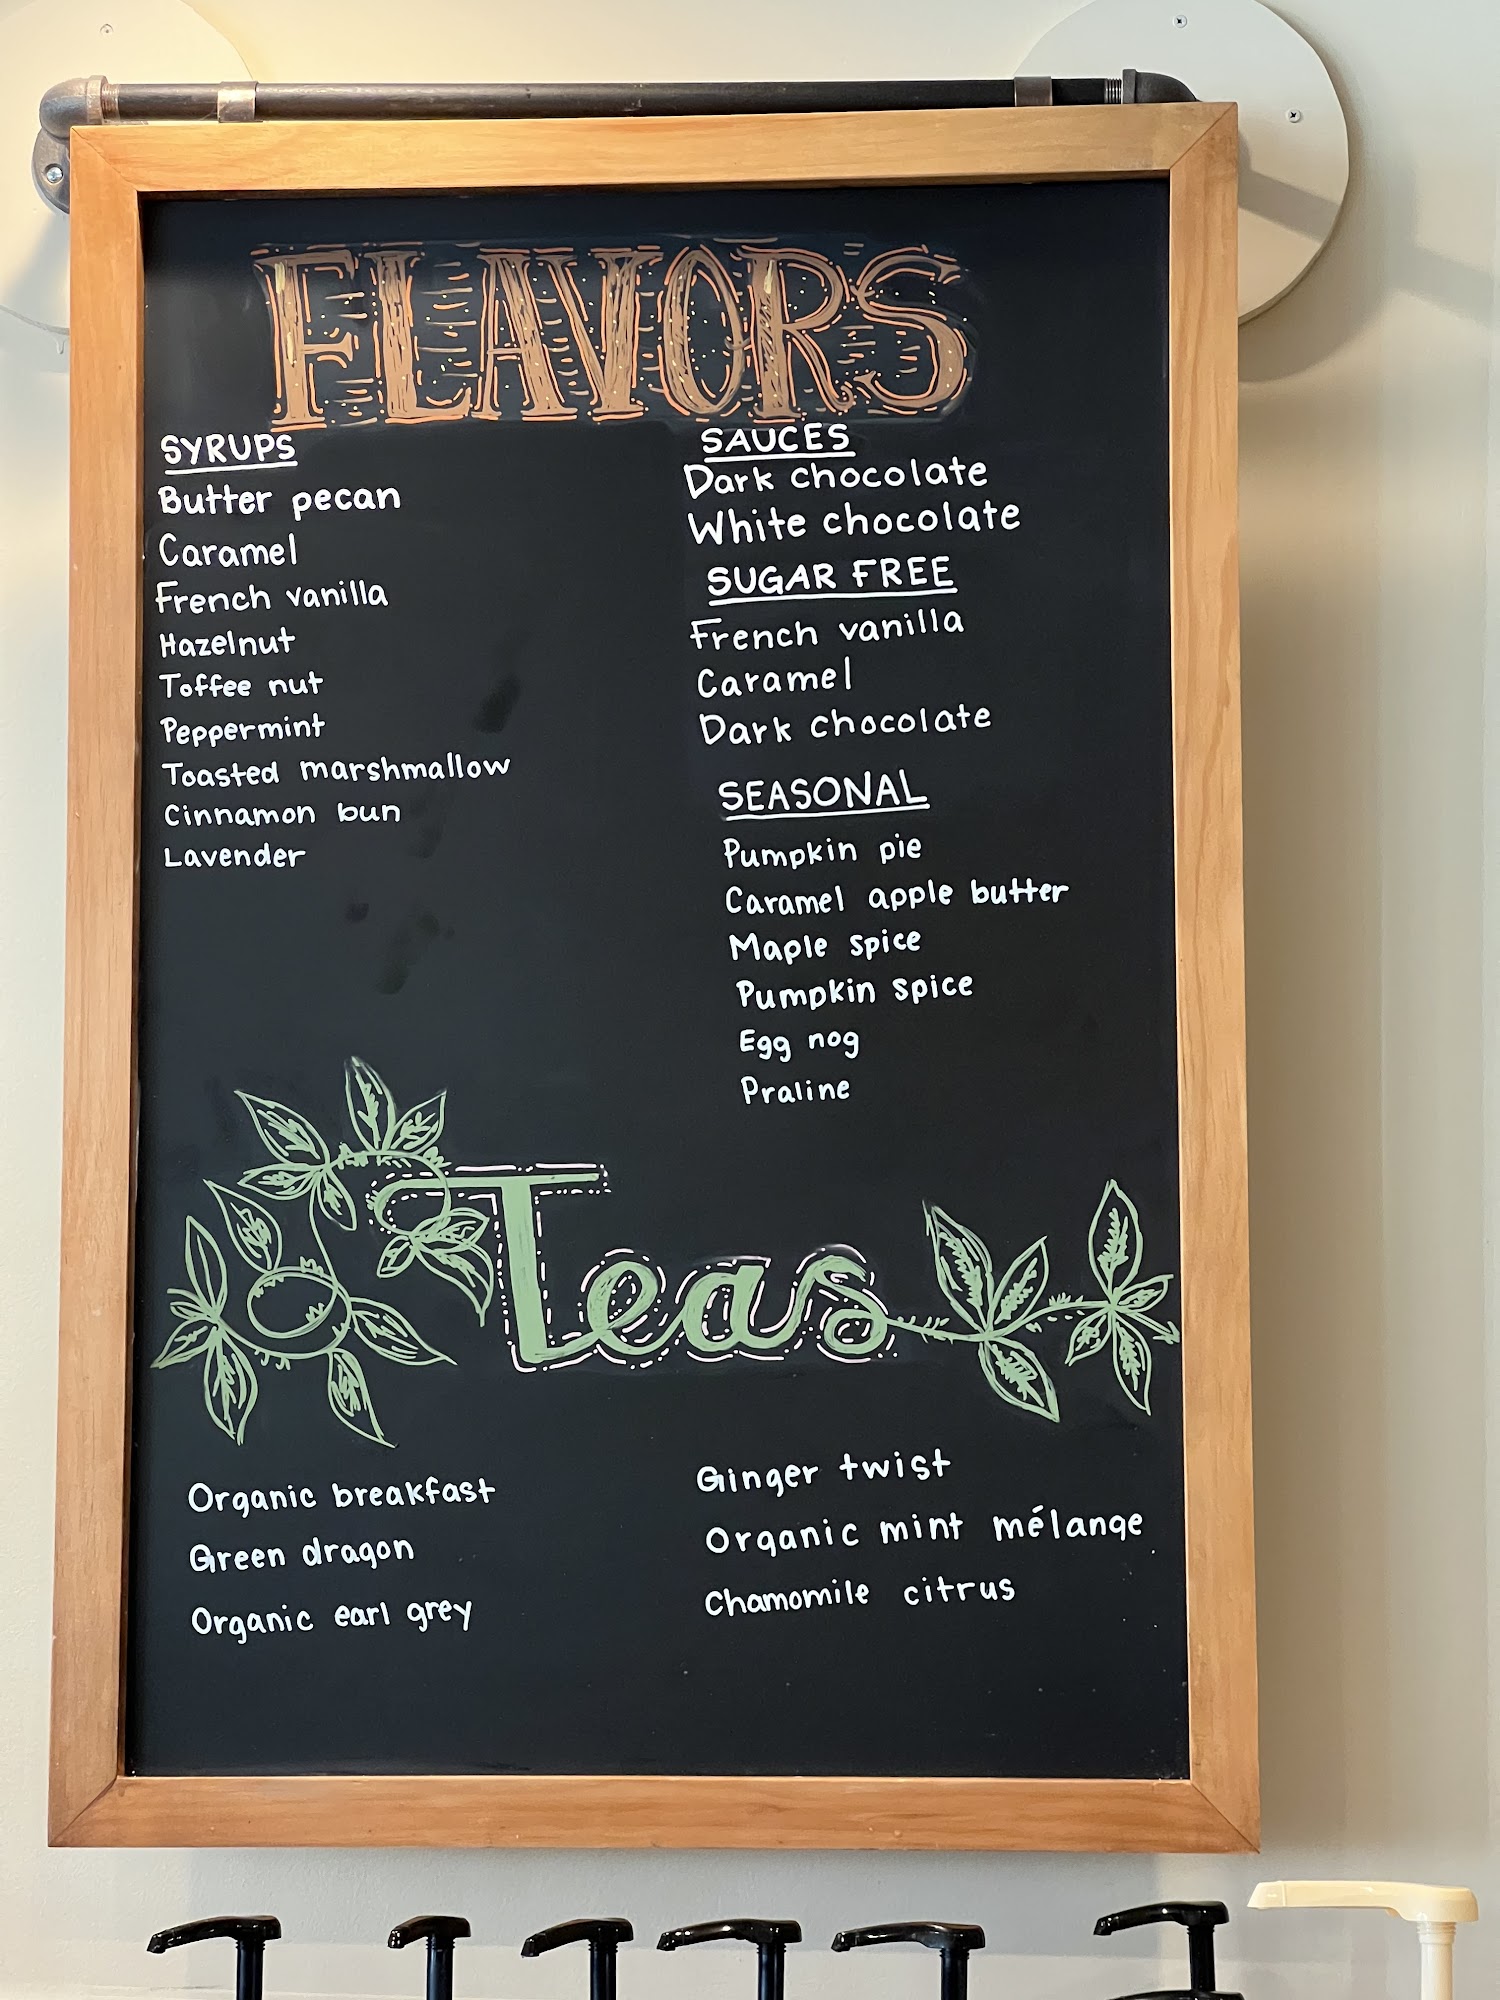 FLAVORS
SYRUPS
Butter pecan
Caramel
French vanilla
Hazelnut
Toffee nut
Peppermint
Toasted marshmallow
Cinnamon bun
Lavender
SAUCES
Dark chocolate
White chocolate
SUGAR FREE
French vanilla
Caramel
Dark chocolate
SEASONAL
Pumpkin pie
Caramel apple butter
Maple spice
Pumpkin spice
Egg nog
Praline
Teas
Organic breakfast
Green dragon
Organic earl grey
Ginger twist
Organic mint mélange
Chamomile citrus